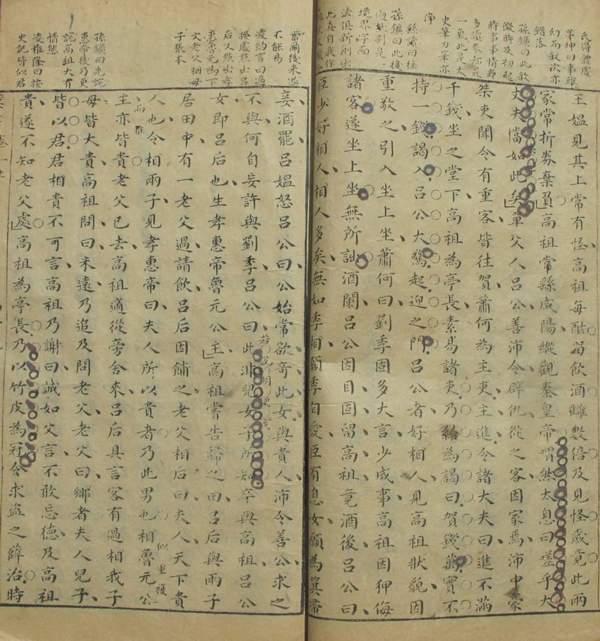 王媼見其上常有怪高祖每酤留飲酒讎數倍及見怪歲竟此兩
家常折券棄責高祖常繇咸陽縱觀秦皇帝喟然太息曰嗟乎大
丈夫當如此矣單父人呂公善沛令辟仇從之客因家焉沛中豪
桀吏聞令有重客皆往賀蕭何為主吏主進令諸大夫曰進不滿
千錢坐之堂下高祖為亭長素易諸吏乃紿為謁曰賀錢萬實不
持一錢謁入呂公大驚起迎之門呂公者好相人見高祖狀貌因
重敬之引入坐上坐蕭何曰劉季固多大言少成事高祖因狎侮
諸客遂坐上坐無所詘酒闌呂公因目固留高祖竟酒後呂公曰
臣少好相人相人多矣無如季相願季自愛臣有息女願為箕帚
妾酒罷呂媼怒呂公曰公始常欲奇此女與貴人沛令善公求之
不與何自妄許與劉季呂公曰此非兒女子所知卒與高祖呂公
女即呂后也生孝惠帝魯元公主高祖嘗告歸之田呂后與兩子
居田中有一老父過請飲呂后因餔之老父相后曰夫人天下貴
人也令相兩子見孝惠帝曰夫人所以貴者乃此男也相魯元公
主亦皆貴老父已去高祖適從旁舍來呂后具言客有過相我子
母皆大貴高祖問曰未遠乃追及問老父老父曰鄉者夫人兒子
皆以君君相貴不可言高祖乃謝曰誠如父言不敢忘德及高祖
貴遂不知老父處高祖為亭長乃以竹皮為冠令求盜之薛治時
凌稚隆曰按
史記皆似君